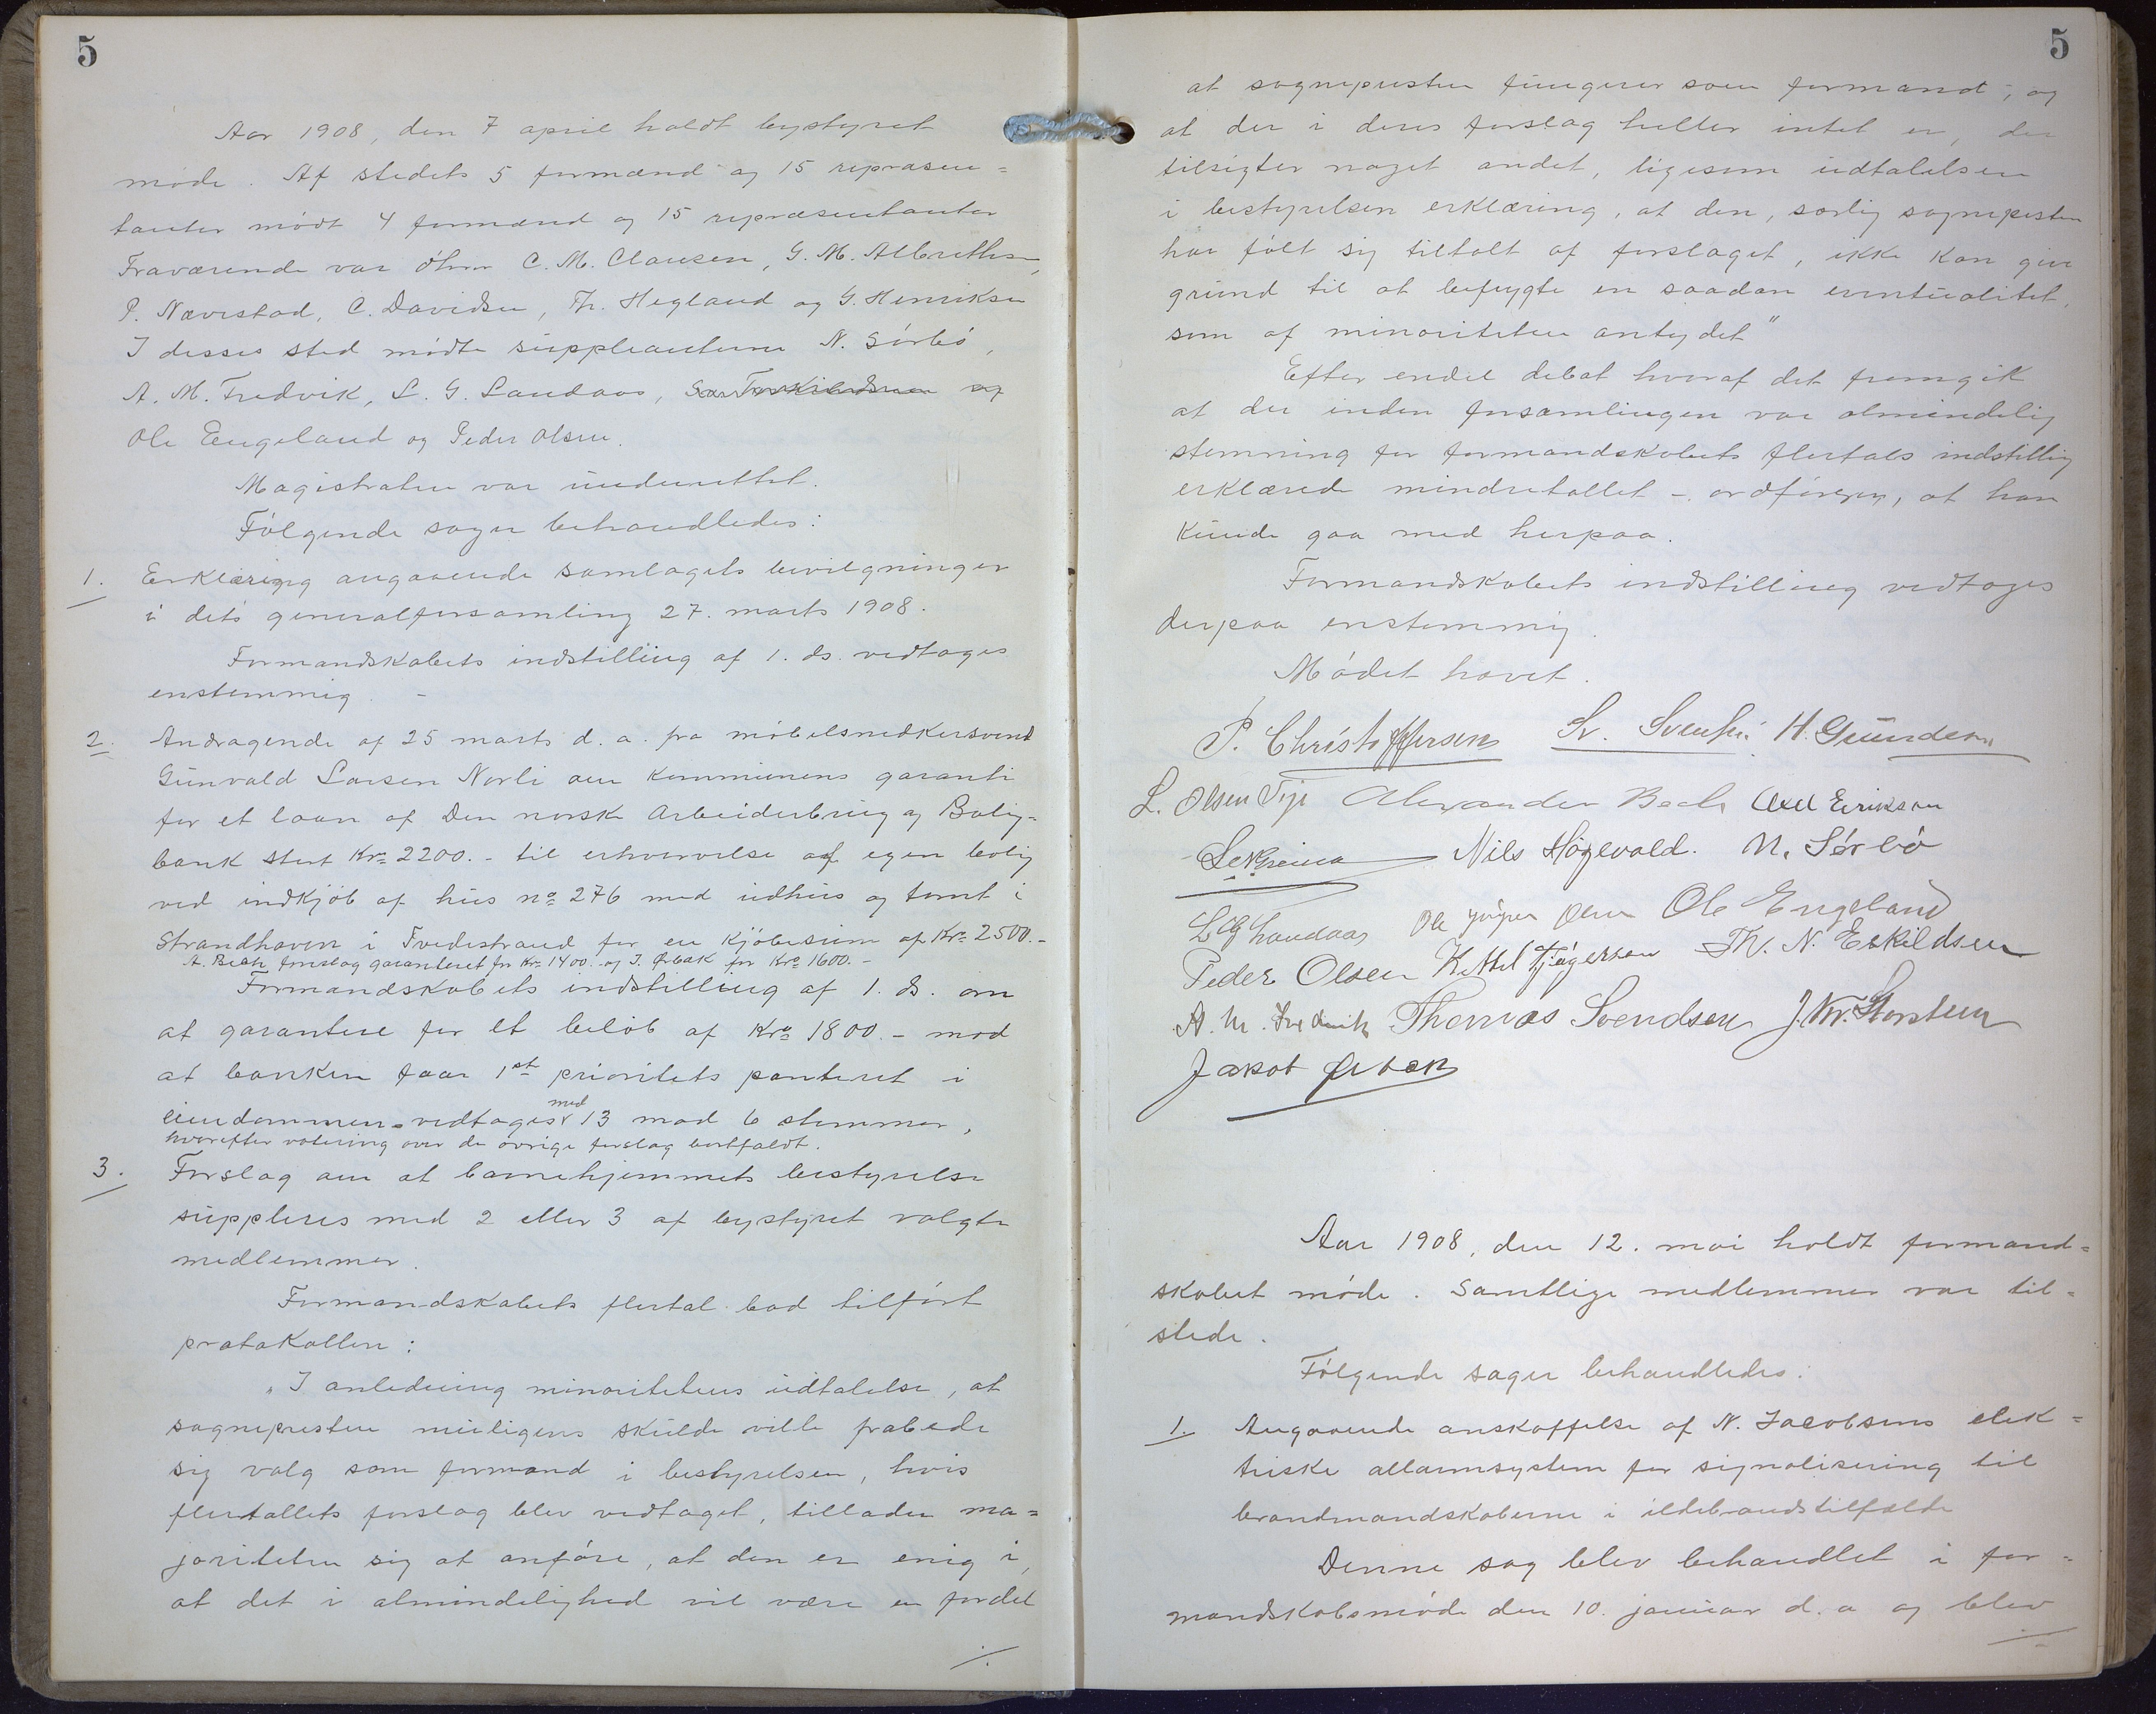 5
Aar 1908, den 7 april holdt bystyret
møde. Af stedets 5 formænd og 15 repræsen=
tanter mødt 4 formænd og 15 repræsentanter
Fraværende var dhrr C. M. Clausen, G. M. Albrethsen,
P. Næverstad, C. Davidsen, Th. Hegland og G. Henriksen
I disses sted mødte suppleanterne N. Sørbø,
A. M. Fredvik, L. G. Landaas, og
Ole Engeland og Peder Olsen.
Magistraten var underrettet.
Følgende sager behandledes:
1. Erklæring angaaende samlagets bevilgninger
i dets generalforsamling 27. marts 1908.
Formandskabets indstilling af 1. ds. vedtages
enstemmig. -
2. Andragende af 25 marts d. a. fra møbelsnedkersvend
Gunvald Larsen Norli om kommunens garanti
for et laan af Den norske Arbeiderbrug og Bolig-
bank stort Kr. 2200.- til erhvervelse af egen bolig
ved indkjøb af hus no 276 med udhus og tomt i
Strandhaven i Tvedestrand for en kjøbesum af Kr. 2500.-
A. Bech forslog garanteret for Kr. 1400.- og J. Ørbæk for Kr. 1600.-
Formandskabets indstilling af 1. ds. om
at garantere for et beløb af Kr. 1800.- mod
at banken faar 1st prioritets panteret i
eiendommen vedtages med 13 mod 6 stemmer,
hvorefter votering over de øvrige forslag bortfaldt.
3. Forslag om at barnehjemmets bestyrelse
suppleres med 2 eller 3 af bystyret valgte
medlemmer.
Formandskabets flertal bad tilført
protokollen:
„I anledning minoritetens udtalelse, at
sognepresten muligens skulde ville frabede
sig valg som formand i bestyrelsen, hvis
flertallets forslag blev vedtaget, tillader ma=
joriteten sig at anføre, at den er enig i,
at det i almindelighed vil være en fordel
./.
5
at sognepresten fungerer som formand, og
at der i deres forslag heller intet er, der
tilsigter noget andet, ligesom udtalelsen
i bestyrelsen erklæring, at den, særlig sognepresten
har følt sig tiltalt af forslaget, ikke kan give
grund til at befrygte en saadan eventualitet,
som af minoriteten antydet"
Efter endel debat hvoraf det fremgik
at der inden forsamlingen var almindelig
stemning for formandskabets flertals indstilling
erklærede mindretallet - ordføreren, at han
kunde gaa med herpaa.
Formandskabets indstilling vedtoges
derpaa enstemmig.
Mødet hævet.
P. Christoffersen H. Gundersen
L. Olsen Alexander Bech Axel Eriksen
Nils Høgevold. N. Sørbø
L G Landaas Ole Olsen Ole Engeland
Peder Olsen Kittel Th. N. Eskildsen
A. M. Fredvik Thomas Svendsen J. Kr. Storsteen
Jakob Ørbæk
Aar 1908, den 12. mai holdt formand=
skabet møde. Samtlige medlemmer var til=
stede.
Følgende sager behandledes:
1. Angaaende anskaffelse af N. Jacobsens elek=
triske allarmsystem for signalisering til
brandmandskaberne i ildebrandstilfælde
Denne sag blev behandlet i for=
mandskabsmøde den 10. januar d. a. og blev
./.